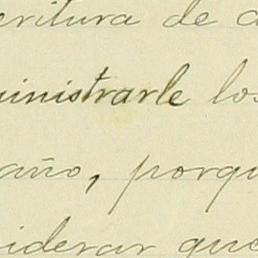 eritura de a
ministrarle los
año, porqu
iderar que